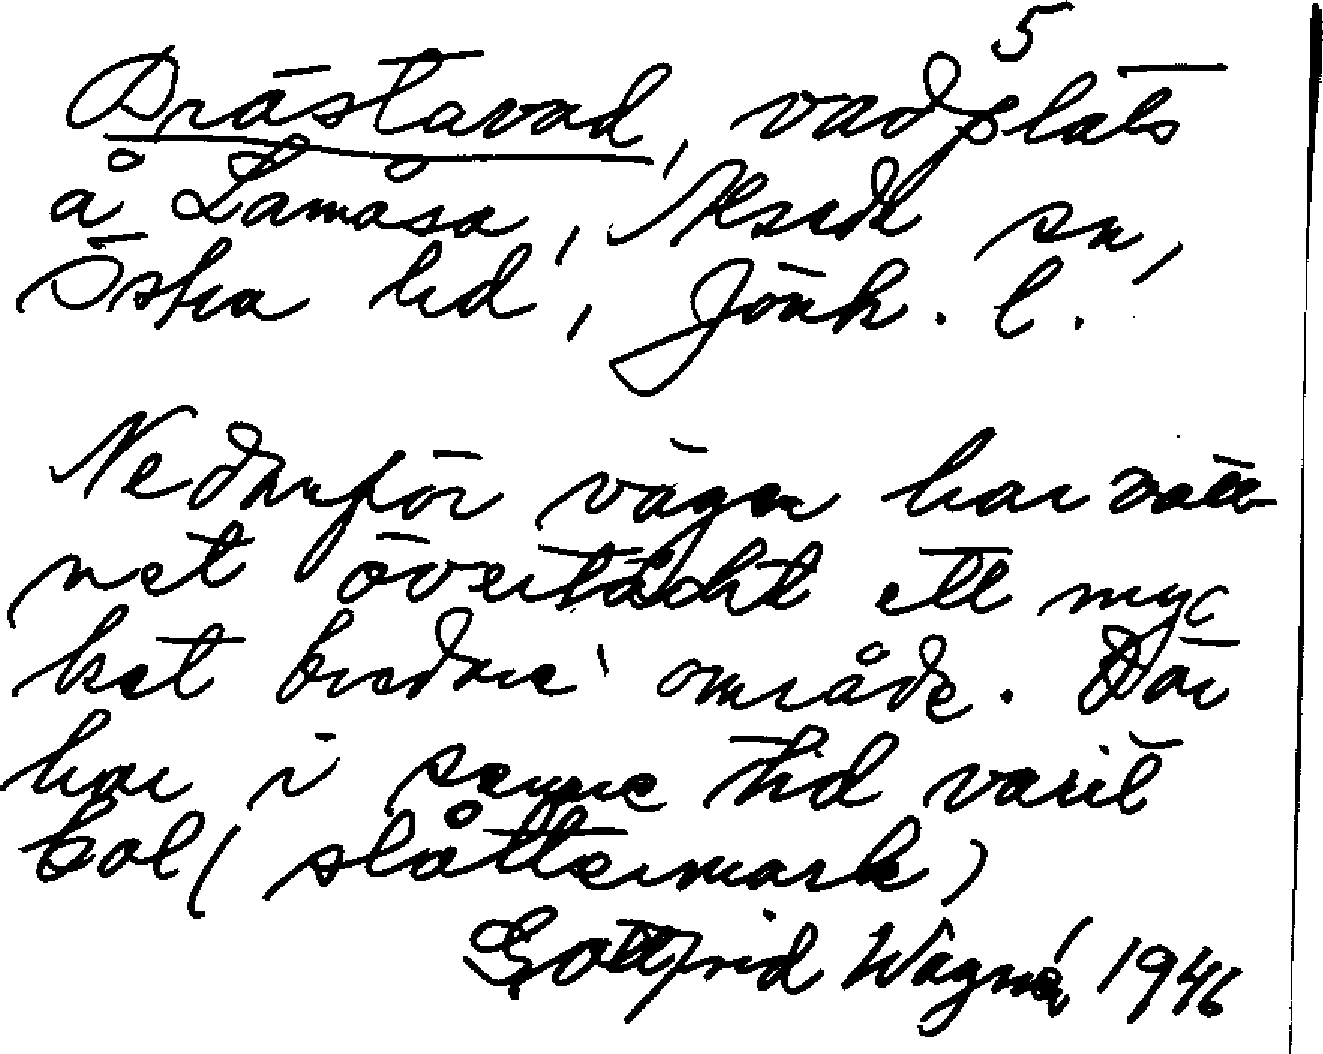 5
Prästavad, vadplats
å Lamåsa, Alseda sn,
Östra hd, Jönk. l.
Nedanför vägen har vatt-
net övertäckt ett myc
ket bredare område. Där
har i senare tid varit
kol (slåttermark)
Gottfrid Wagnér 1946